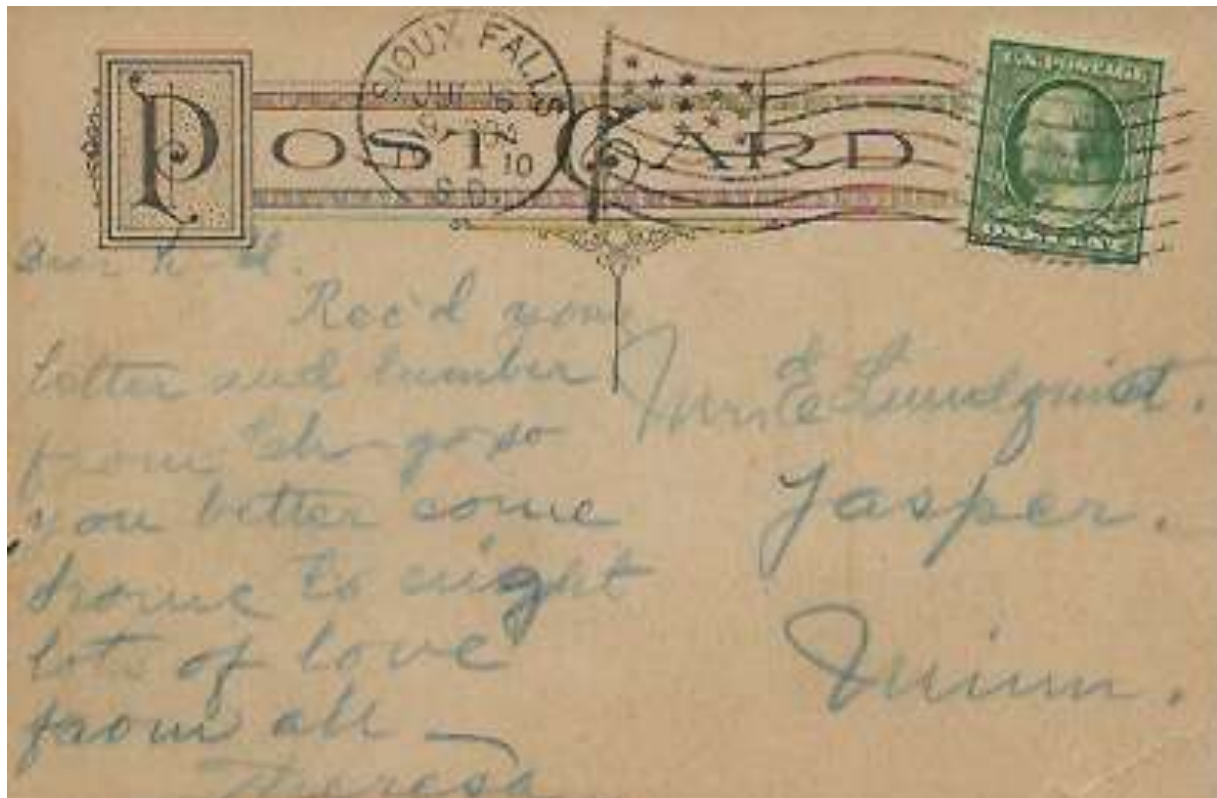 POST CARD
SIOUX FALLS
10
S.D.
U.S. POSTAGE
ONE CENT
Dear
Rec'd your
letter and number
from go so
you better come
home to night
lots of love
from all
Theresa
Mrs. E. Lundquist.
Jasper.
Minn.